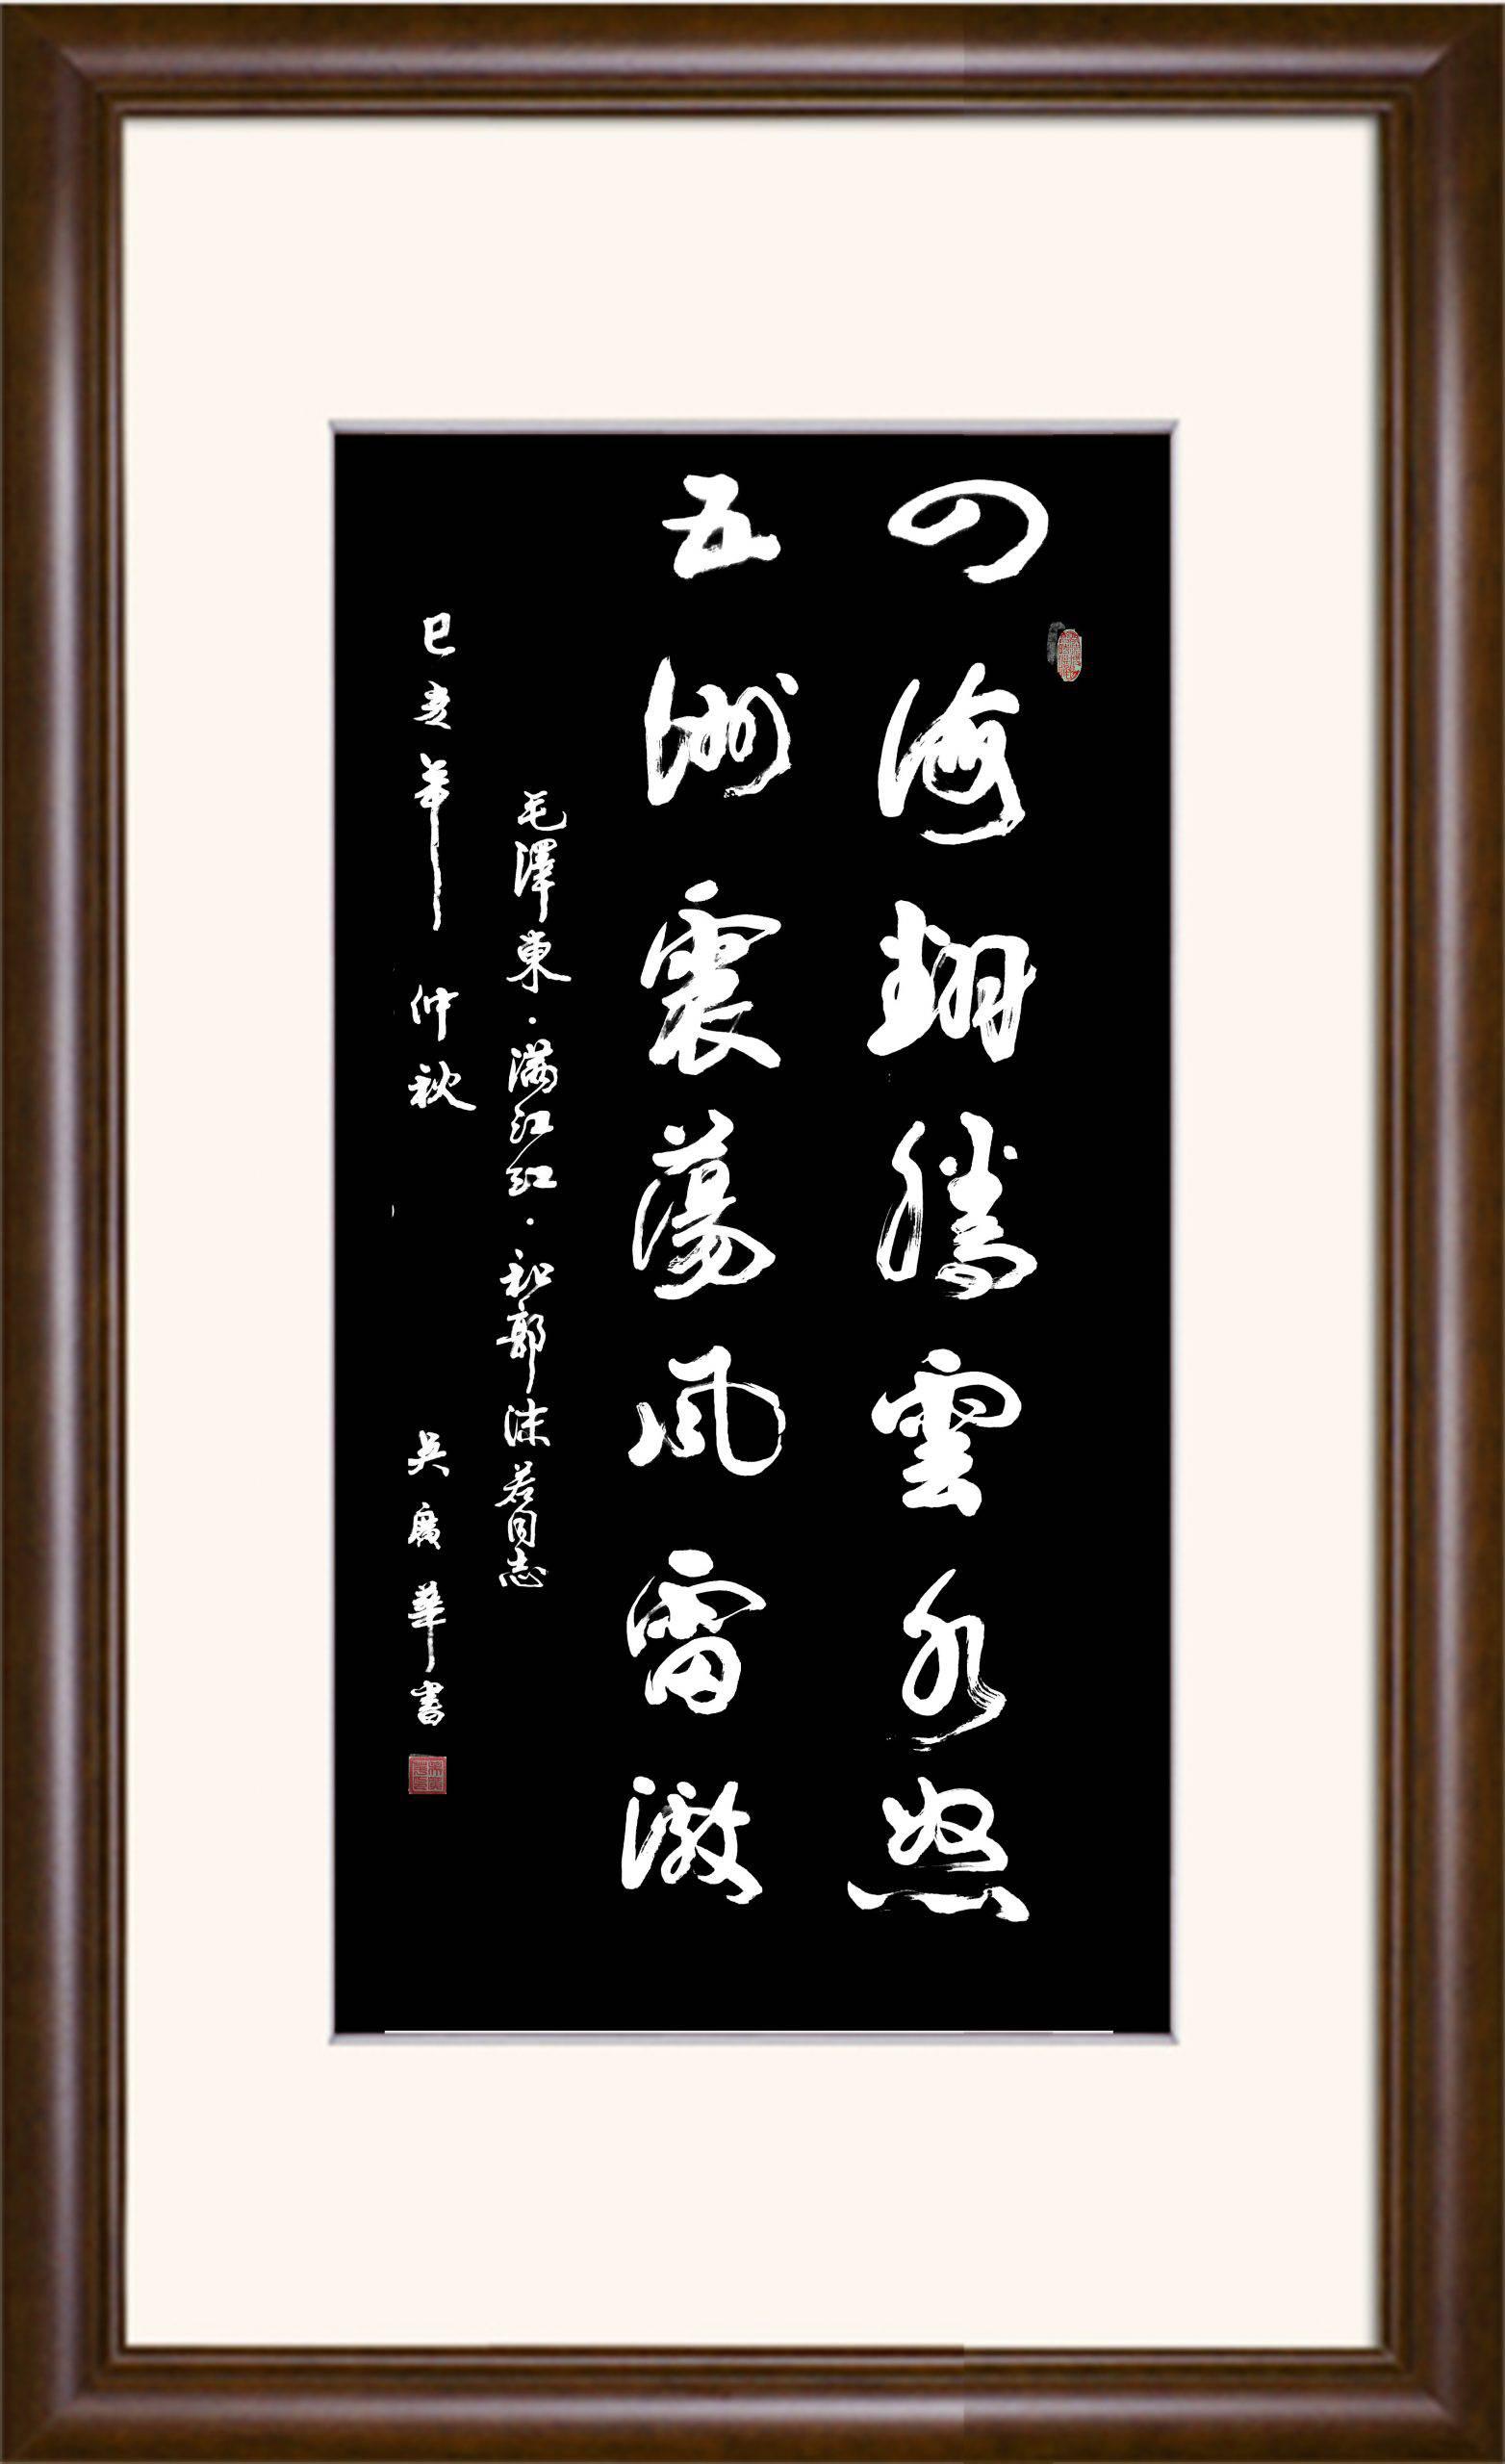 四海翻騰雲水怒
五洲震蕩風雷激
毛澤東·滿江紅·和郭沫若同志
己亥年 仲秋 吴廣華書